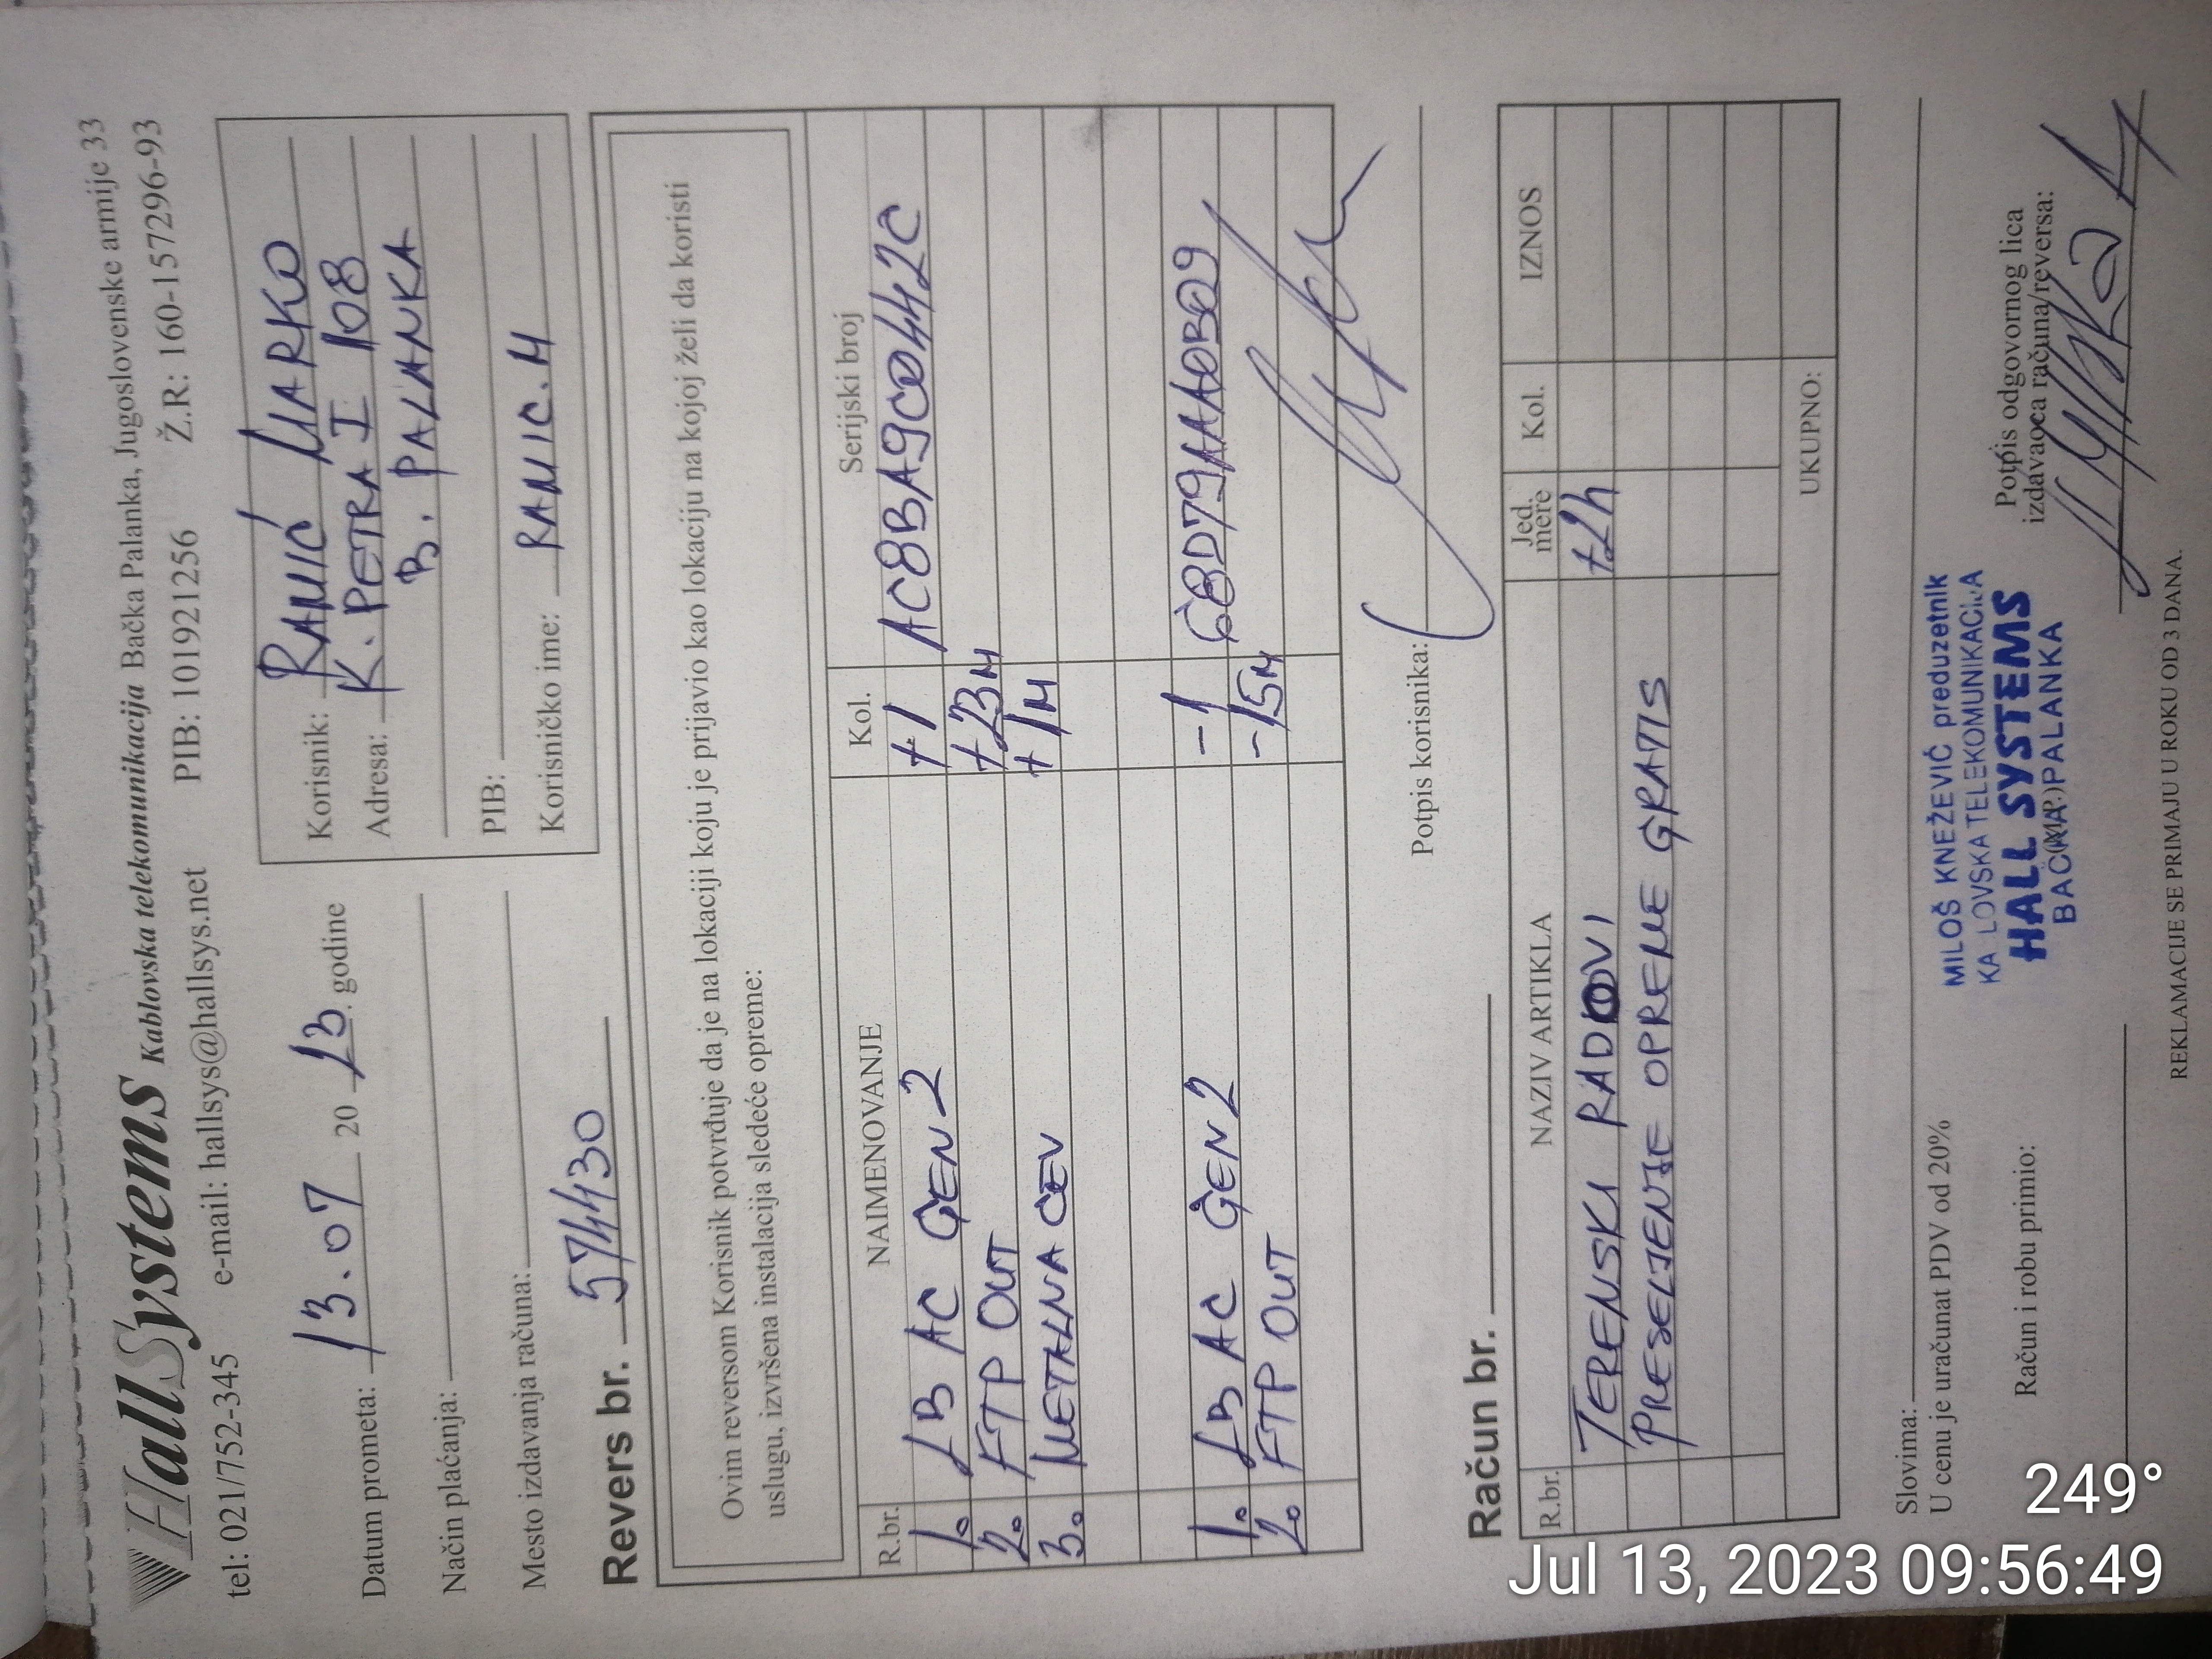 HallSystems Kablovska telekomunikacija Bačka Palanka, Jugoslovenske armije 33
tel: 021/752-345 e-mail: hallsys@hallsys.net PIB: 101921256 Ž.R: 160-157296-93
Datum prometa: 13.07 20 23. godine
Način plaćanja:
Mesto izdavanja računa:
Korisnik: RAMIĆ MARKO
Adresa: K. PETRA I 108
B. PALANKA
PIB:
Korisničko ime: RAMIC.M
Revers br. 574430
Ovim reversom Korisnik potvrđuje da je na lokaciji koju je prijavio kao lokaciju na kojoj želi da koristi
uslugu, izvršena instalacija sledeće opreme:
R.br. NAIMENOVANJE Kol. Serijski broj
1. LB AC GEN2 +1 AC8BA9C0442C
2. FTP OUT +23M
3. METALNA CEV +1M
1. LB AC GEN2 -1 68D79AA0B09
2. FTP OUT -15M
Potpis korisnika:
Račun br.
R.br. NAZIV ARTIKLA Jed. mere Kol. IZNOS
TERENSKI RADOVI +2h
PRESELJENJE OPREME GRATIS
UKUPNO:
Slovima:
U cenu je uračunat PDV od 20%
Račun i robu primio:
MILOŠ KNEŽEVIĆ preduzetnik
KA LOVSKA TELEKOMUNIKACIJA
HALL SYSTEMS
BAČKA PALANKA
(M.P.)
Potpis odgovornog lica
izdavaoca računa/reversa:
REKLAMACIJE SE PRIMAJU U ROKU OD 3 DANA.
249°
Jul 13, 2023 09:56:49